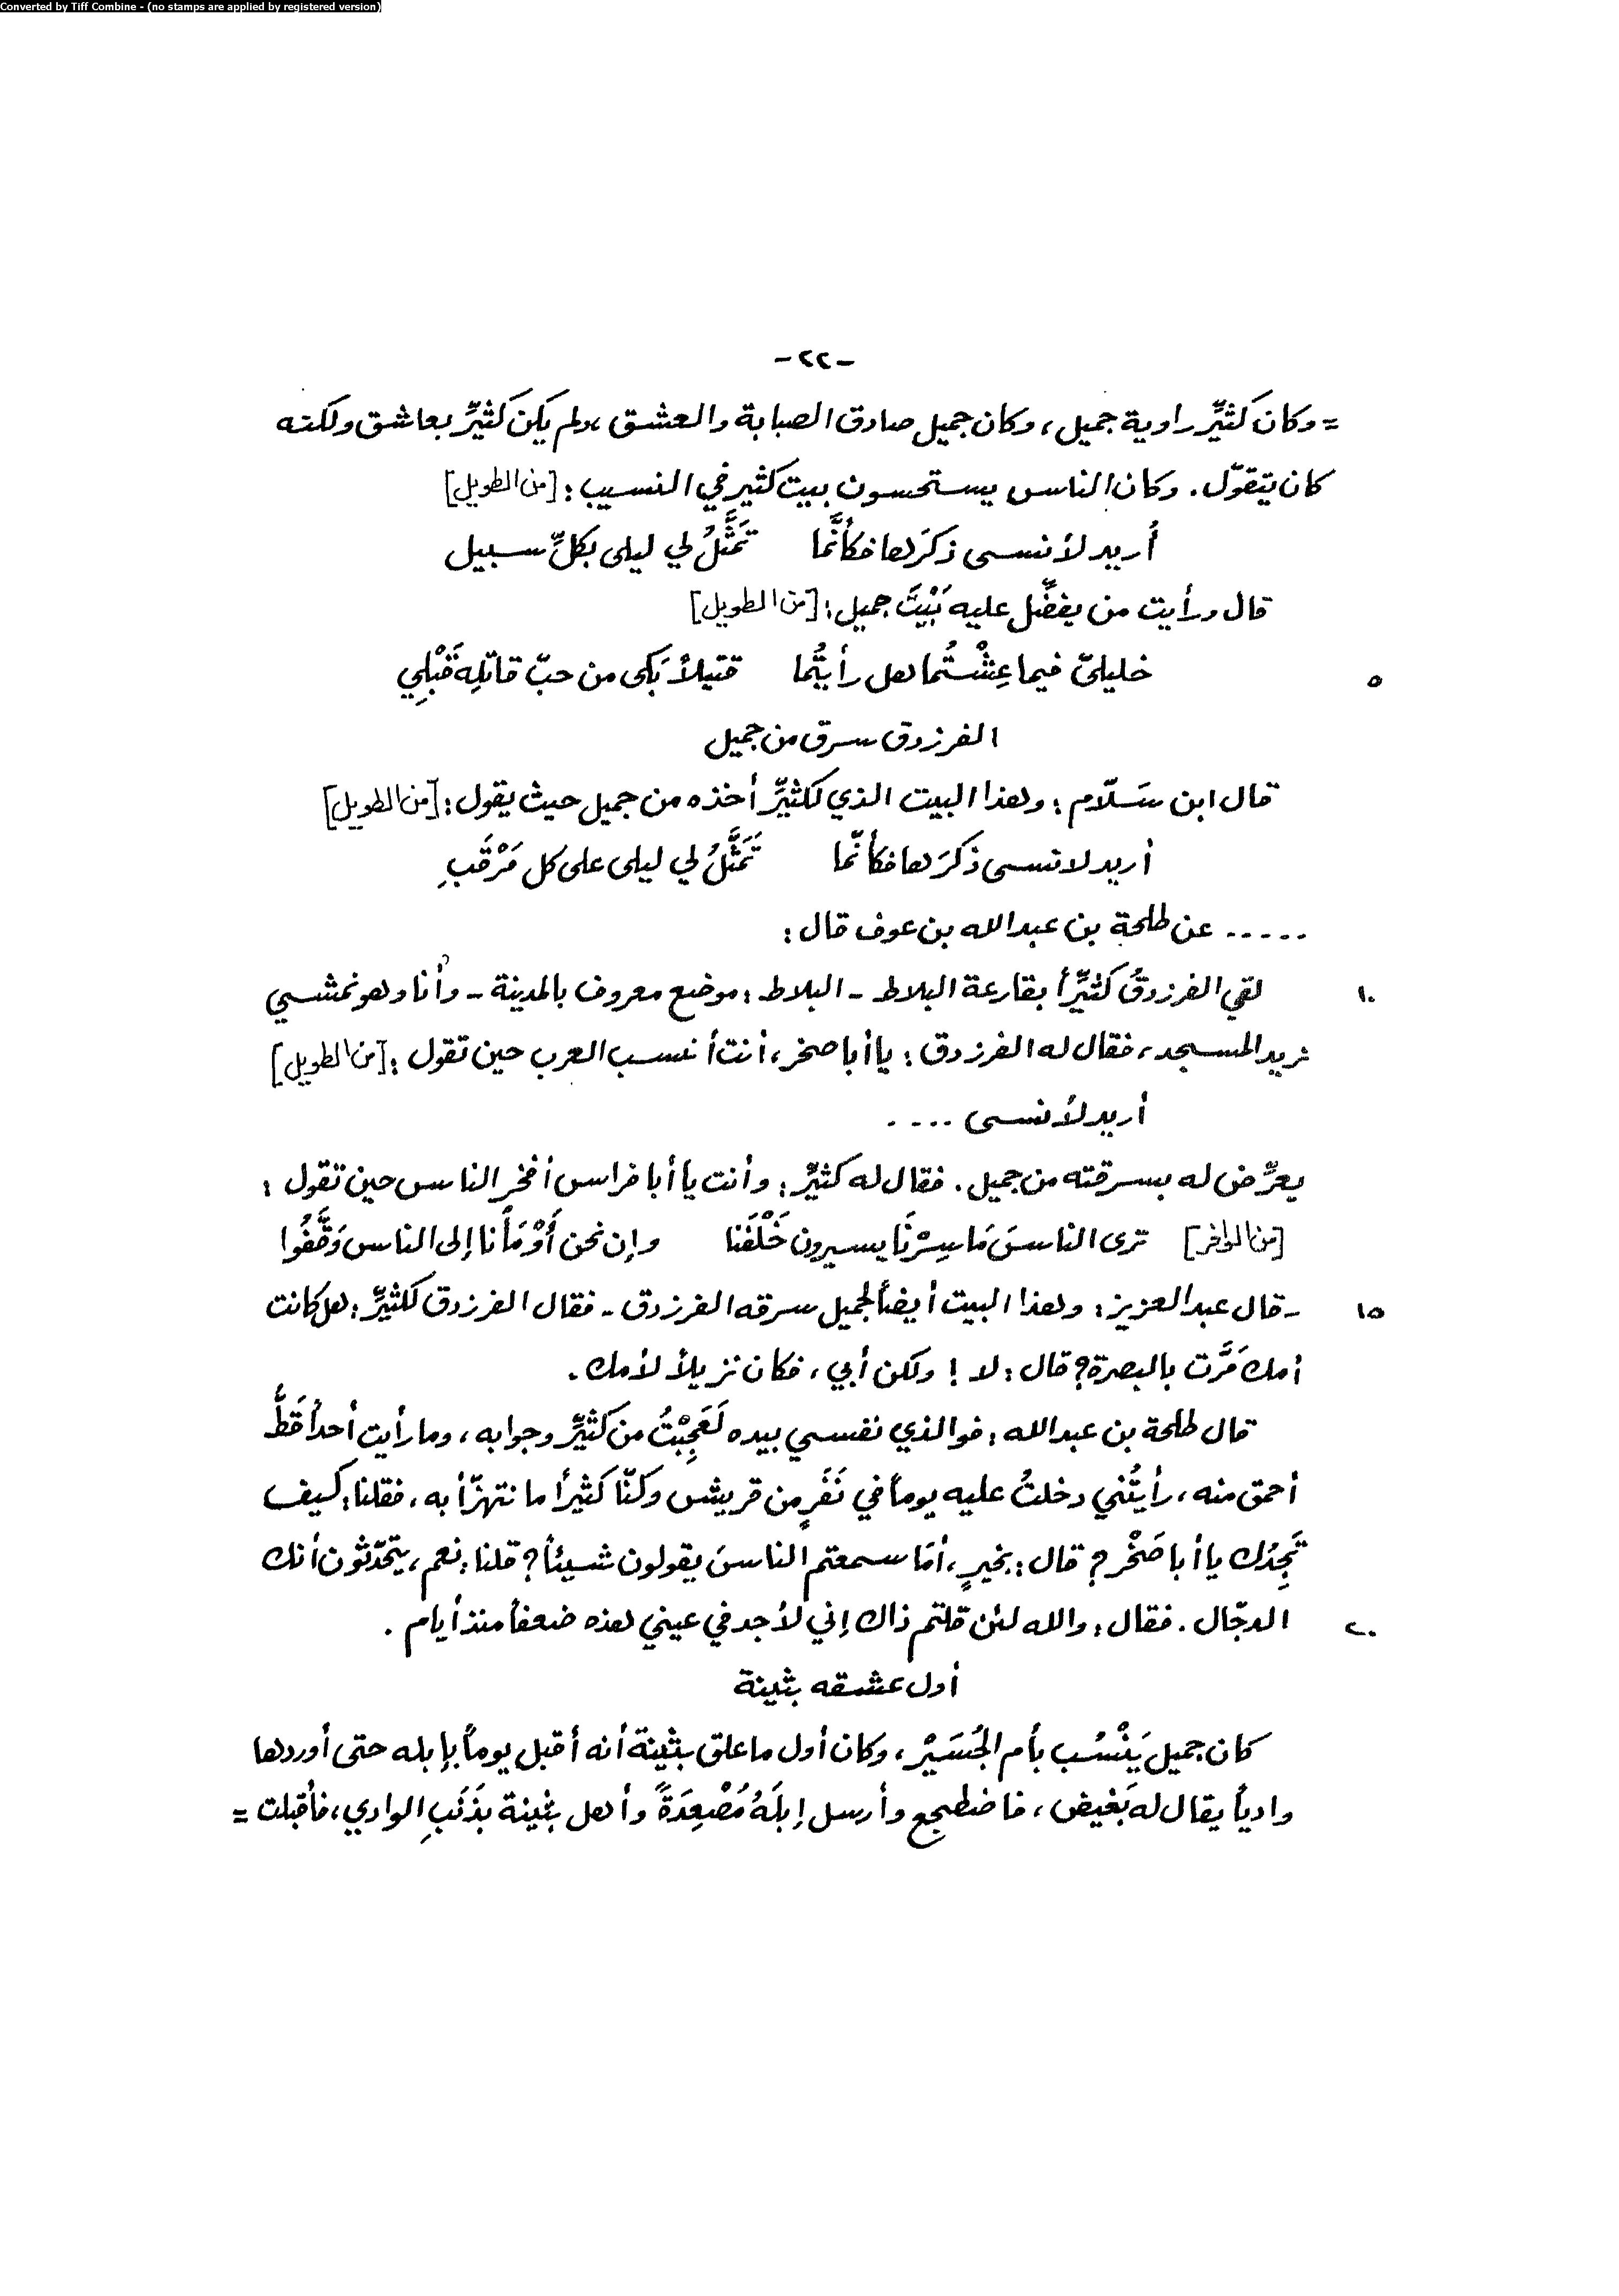 Converted by Tiff Combine - (no stamps are applied by registered version)
-٢٢-
= وكان كثيِّر راوية جميل، وكان جميل صادق الصبابة والعشق، ولم يكن كثيِّر بعاشق ولكنه
كان يتقوّل. وكان الناس يستحسون بيت كثير في النسيب: [من الطويل]
أُريد لأنسى ذكرَها فكأنَّما تَمَثَّلُ لي ليلى بكلِّ سبيل
قال ورأيت من يفضِّل عليه بَيْتَ جميل: [من الطويل]
خليليّ فيما عِشْتُما هل رأيتُما قتيلاً بَكى من حبّ قاتلِهِ قَبْلِي ٥
الفرزدق سرق من جميل
قال ابن سَلّام: وهذا البيت الذي لكثيِّر أخذه من جميل حيث يقول: [من الطويل]
أريد لانسى ذكرَها فكأنّما تَمَثَّلُ لي ليلى على كل مَرْقَبِ
..... عن طلحة بن عبدالله بن عوف قال:
لقي الفرزدقُ كثيِّرأ بقارعة البلاط - البلاط: موضع معروف بالمدينة - وأنا وهو نمشي ١٠
نريد المسجد، فقال له الفرزدق: يا أبا صخر، أنت أنسب العرب حين تقول: [من الطويل]
أريد لأنسى ....
يعرِّض له بسرقته من جميل. فقال له كثيِّر: وأنت يا أبا فراس أفخر الناس حين تقول:
[من الوافر] ترى الناسَ مَا سِرْنَا يسيرون خَلْفَنا وإن نحن أَوْمَأْنا إلى الناس وَقَّفُوا
- قال عبد العزيز: وهذا البيت أيضاً لجميل سرقه الفرزدق - فقال الفرزدق لكثيِّر: هل كانت ١٥
أمك مَرَّت بالبصرة؟ قال: لا! ولكن أبي، فكان نزيلاً لأمك.
قال طلحة بن عبدالله: فوالذي نفسي بيده لَعَجِبْتُ من كثيِّر وجوابه، وما رأيت أحداً قَطُّ
أحمق منه، رأيتُني دخلتُ عليه يوماً في نَفَرٍ من قريش وكنّا كثيراً ما نتهزّأ به، فقلنا: كيف
تَجِدُك يا أبا صَخْر؟ قال: بخيرٍ، أمَا سمعتم الناسَ يقولون شيئاً؟ قلنا: نعم، يتحدّثون أنك
الدجّال. فقال: والله لئن قلتم ذاك إني لأجد في عيني هذه ضعفاً منذ أيام. ٢٠
أول عشقه بثينة
كان جميل يَنْسُب بأم الجُسَيْر، وكان أول ما علق بثينة أنه أقبل يوماً بإبله حتى أوردها
وادياً يقال له بَغيض، فاضطجع وأرسل إبلَهُ مُصْعِدَةً وأهل بثينة بذَنَبِ الوادي، فأقبلت =